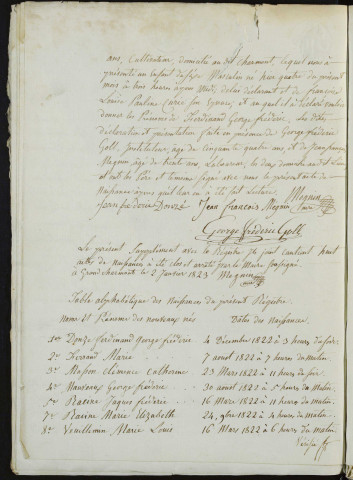 ans, Cultivateur, domicilié au dit Charmont, lequel nous à
présenté un Enfant du sexe Masculin né hier quatre du présent
mois à trois heures après Midi, de lui déclarant et de françoise
Louise Pauline Curie son Epouse, et au quel il a déclaré vouloir
donner les Prénoms de ferdinand George fréderic. Les dites
déclaration et présentation faite en présence de George fréderic
Goll, Instituteur, âgé de cinquante quatre ans, et de Jean françois
Mognon, âgé de trente ans, Laboureur, les deux domiciliés
et ont les Père et temoins signé avec nous le présent acte de
Naissance après qu'il leur en à été fait Lecture.
Jean françois Megnin Megnin maire
George fréderic Goll
Le présent Supplement avec le Registre contient huit
actes de naissance à été clos et arreté par le Maire soussigné
à Grand Charmont le 2 Janvier 1823 Megnin
Table alphabétique des Naissances du présent Régistre.
Noms et Prénoms des nouveaux nés Dates des naissances.
1er Donze ferdinand George fréderic 4 Décembre 1822 à 3 heures du soir.
2e Marie 7 aout 1822 à 7 heures du matin
3e Masson Clémence Catherine 23 Mars 1822 à 11 heures du soir.
4e George fréderic 30 aout 1822 à 5 heures du Matin.
5e Racine Jaques fréderic 16 Mars 1822 à 11 heures du matin.
7e Racine Marie Elizabeth 24 9bre 1822 à 4 heures du matin.
8e Veuillemin Marie Louis 16 Mars 1822 à 6 heures du matin.